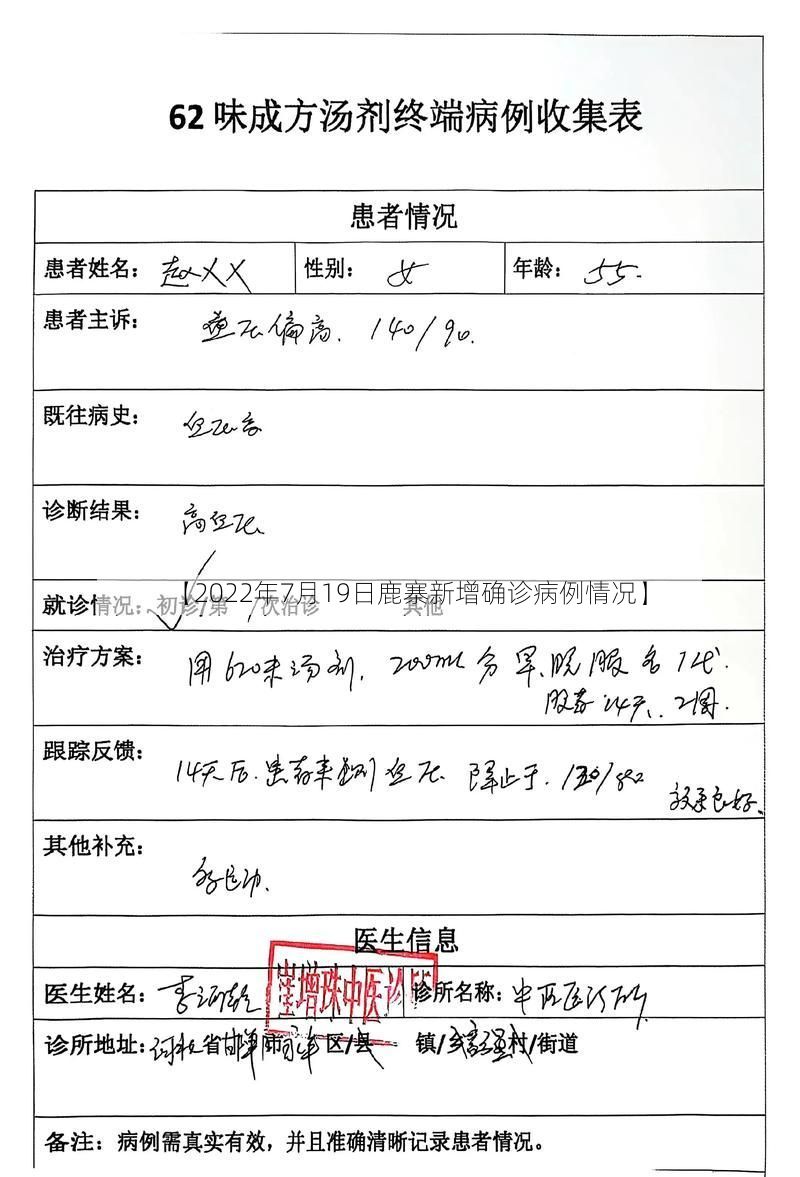 62味成方汤剂终端病例收集表
患者情况
患者姓名：赵XX 性别：女 年龄：55.
患者主诉：血压偏高. 140/90.
既往病史：血压高
诊断结果：高血压
【2022年7月19日鹿寨新增确诊病例情况】
就诊情况：初诊/第 次治诊 其他
治疗方案：用62味汤剂, 200ml 分早、晚服各1代.
服药14天、2周.
跟踪反馈：14天后.患者来量血压 降止于.
效果良好、
其他补充：多运动.
医生信息
崔增珠中医诊所
医生姓名：李 诊所名称：中医诊所
诊所地址：河北省邯郸市 区/县 镇/乡 村/街道
备注：病例需真实有效，并且准确清晰记录患者情况。